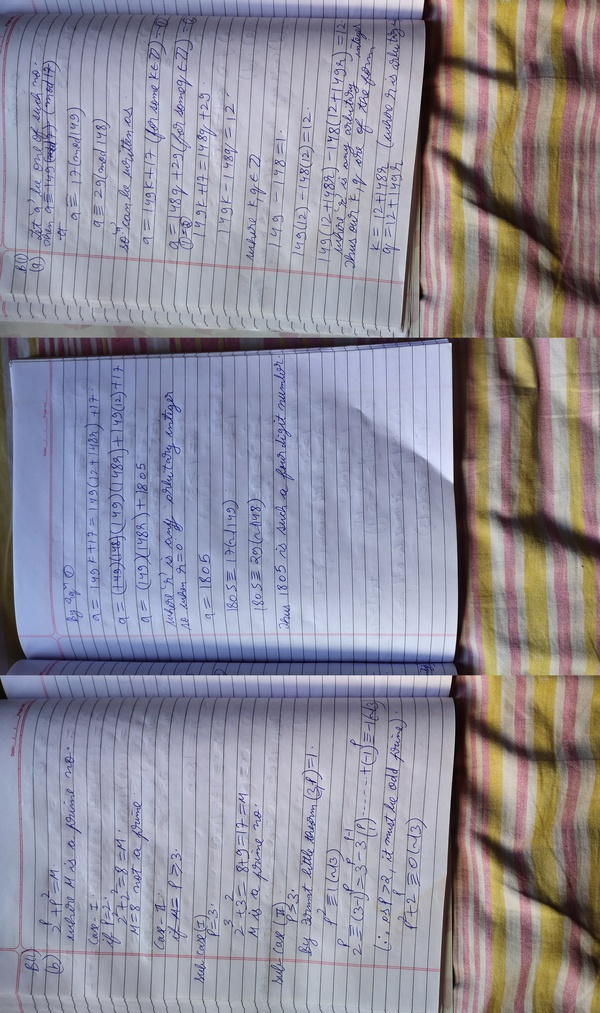 B(1)
(a) Let 'a' be one of such no.
then
a ≡ 17 (mod 149)
a ≡ 29 (mod 148)
so 'a' can be written as
a = 149k + 17 (for some k ∈ Z) —①
a = 148q + 29 (for some q ∈ Z) —②
① = ②
149k + 17 = 148q + 29
149k - 148q = 12
where k, q ∈ Z
149 - 148 = 1.
149(12) - 148(12) = 12.
149(12+148r) - 148(12+149r) = 12
where 'r' is any arbitrary integer
thus our k, q are of the form
k = 12 + 148r
q = 12 + 149r (where r is
By eqn ①
a = 149k + 17 = 149(12 + 148r) + 17.
a = (149)(148r) + 149(12) + 17
a = (149)(148r) + 1805
where 'r' is any arbitrary integer
so when r = 0
a = 1805
1805 ≡ 17 (n 149)
1805 ≡ 29 (n 148)
thus 1805 is such a four digit number.
B(1)
(b) 2^p + p^2 = M
where M is a prime no.
Case-I
if p = 2
2^2 + 2^2 = 8 = M.
M = 8 not a prime
Case-II
if M = P ≥ 3.
sub case (I)
P = 3.
2^3 + 3^2 = 8 + 9 = 17 = M
M is a prime no.
sub-case (II)
P > 3.
By Fermat little theorem (3, P) = 1.
p^2 ≡ 1 (n 3)
2^p = (3-1)^p = 3^p - 3^{p-1}(p/1) ...... + (-1)^p ≡ -1 (n 3)
(∵ as P > 2, it must be odd prime).
p^2 + 2^p ≡ 0 (n 3)